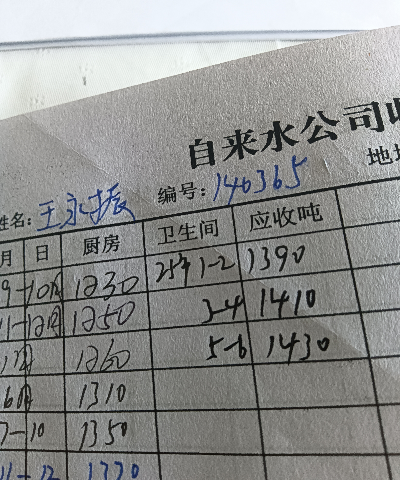 自来水公司收
姓名: 王永振 编号: 140365 地址
月 日 厨房 卫生间 应收吨
9-10月 1230 25年1-2 1390
11-12月 1250 3-4 1410
1260 5-6 1430
6月 1310
7-10 1350
11-12 1370